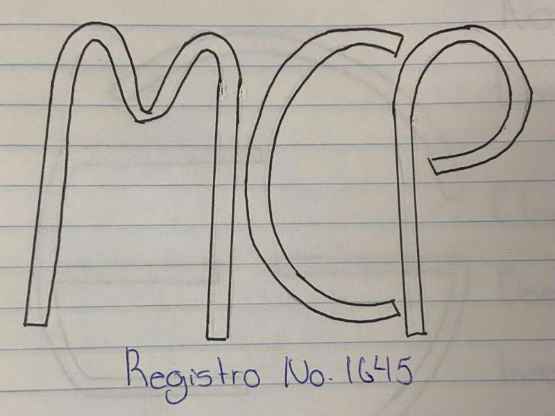 MCP
Registro No. 1645